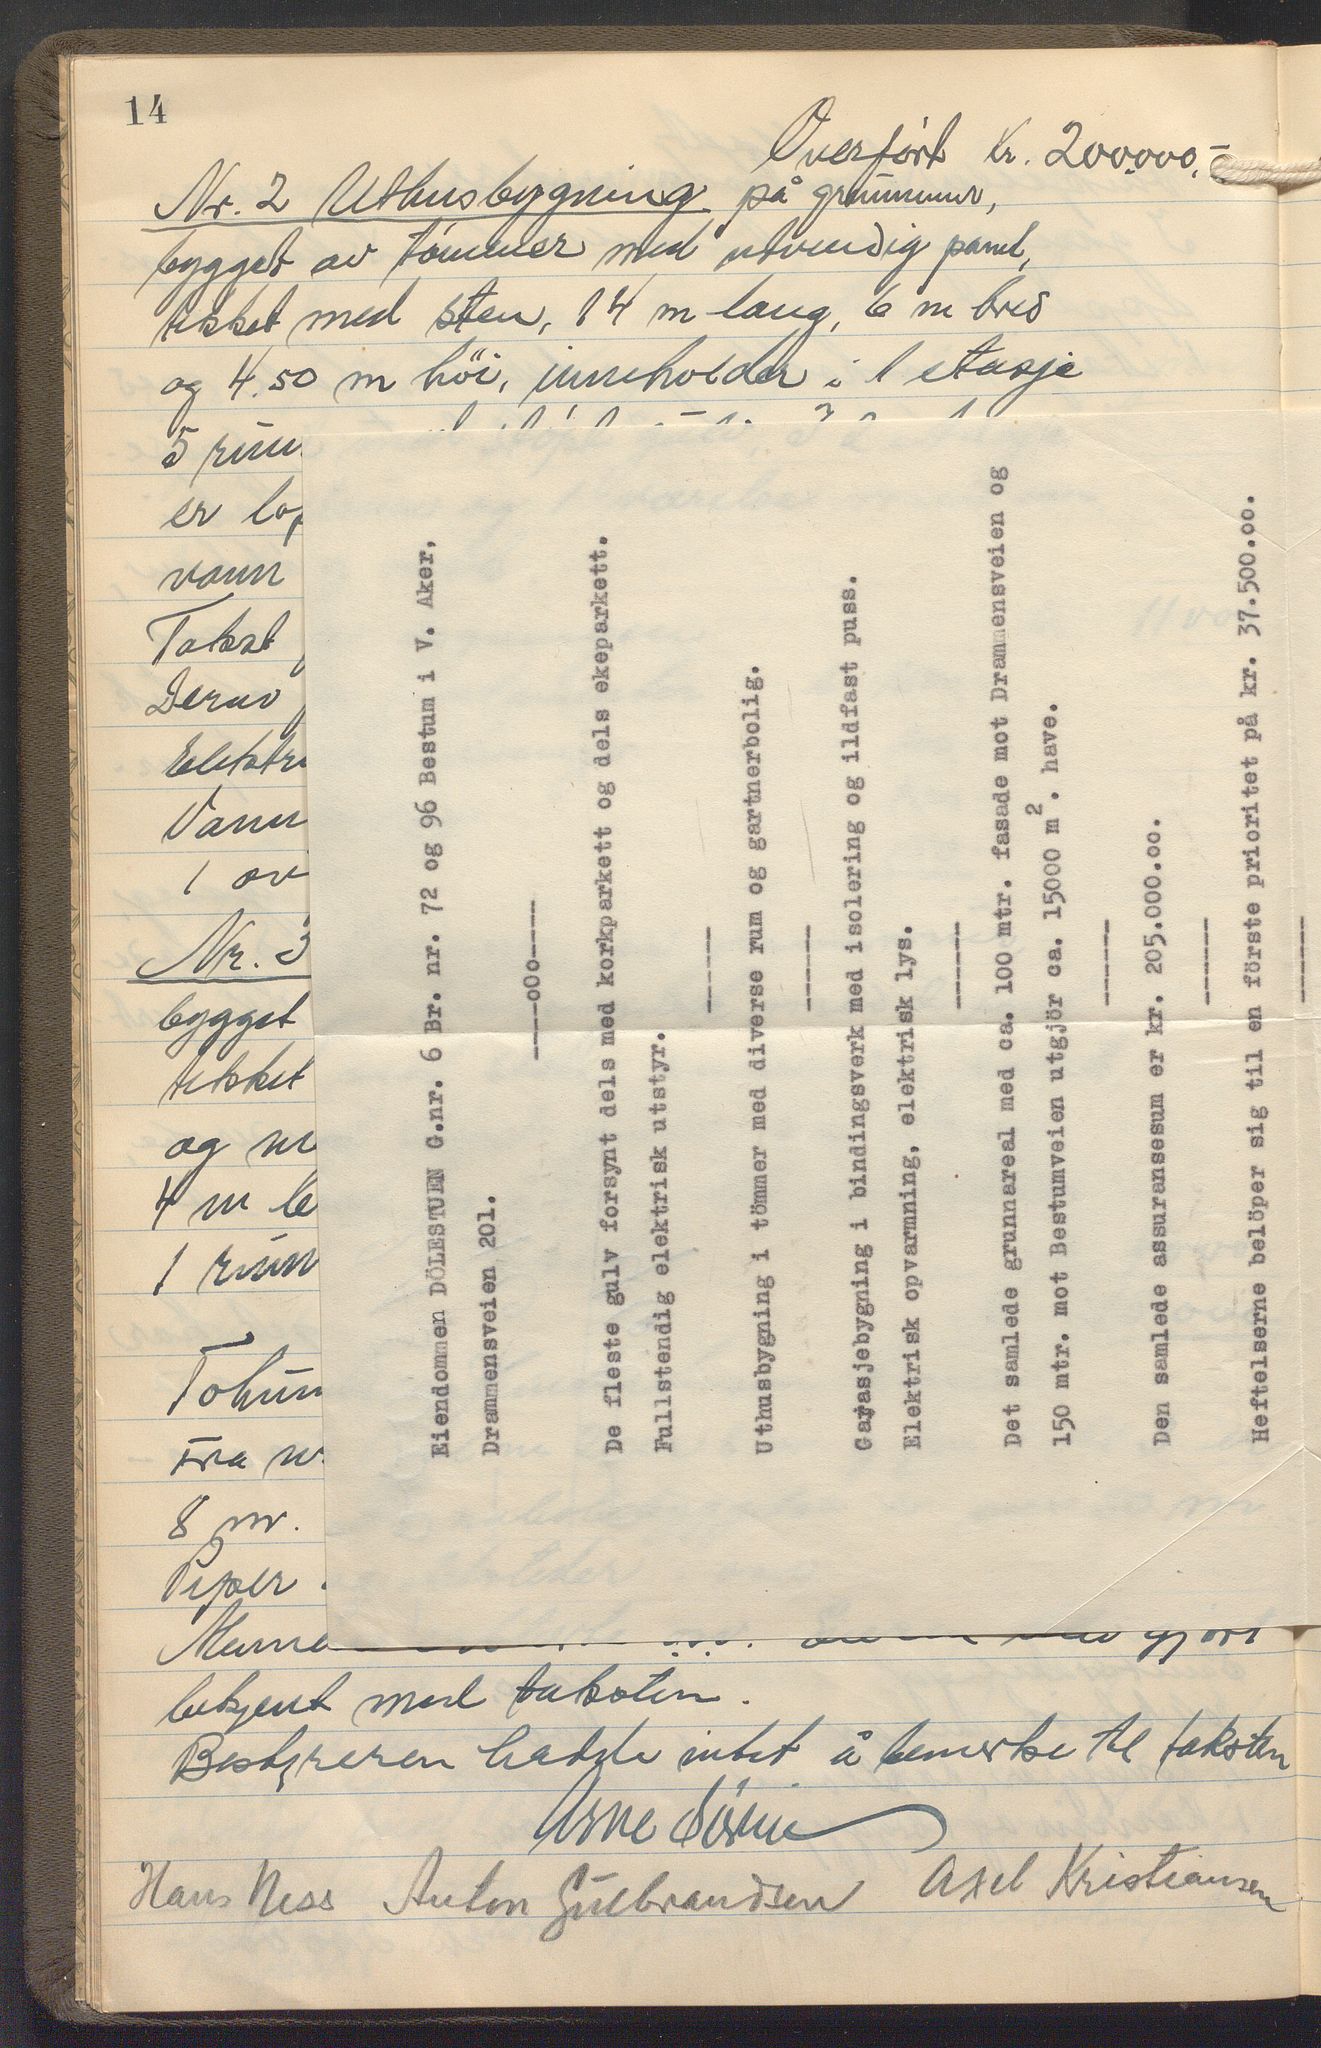 14
Overført kr. 200.000,-
Nr. 2 Uthusbygning på grunnmur,
bygget av tömmer med utvendig panel,
tekket med sten, 14 m lang, 6 m bred
og 4.50 m höi, inneholder i 1 etasje
5 rum
er
vann
Takst
Derav
Elektr
Vann
1 av
Nr. 3
bygget
tekket
og
4 m
1 rum
Fra
8 m.
Piper
gjort
bekjent med taksten.
Bestyreren hadde intet å bemerke til taksten
Arne
Hans Ness Anton Gulbrandsen Axel Kristiansen
Eiendommen DÖLESTUEN G.nr. 6 Br. nr. 72 og 96 Bestum i V. Aker,
Drammensveien 201.
----oOo----
De fleste gulv forsynt dels med korkparkett og dels ekeparkett.
Fullstendig elektrisk utstyr.
------
Uthusbygning i tömmer med diverse rum og gartnerbolig.
------
Garasjebygning i bindingsverk med isolering og ildfast puss.
Elektrisk opvarmning, elektrisk lys.
------
Det samlede grunnareal med ca. 100 mtr. fasade mot Drammensveien og
150 mtr. mot Bestumveien utgjör ca. 15000 m². have.
------
Den samlede assuransesum er kr. 205.000.oo.
------
Heftelserne belöper sig til en förste prioritet på kr. 37.500.oo.
------